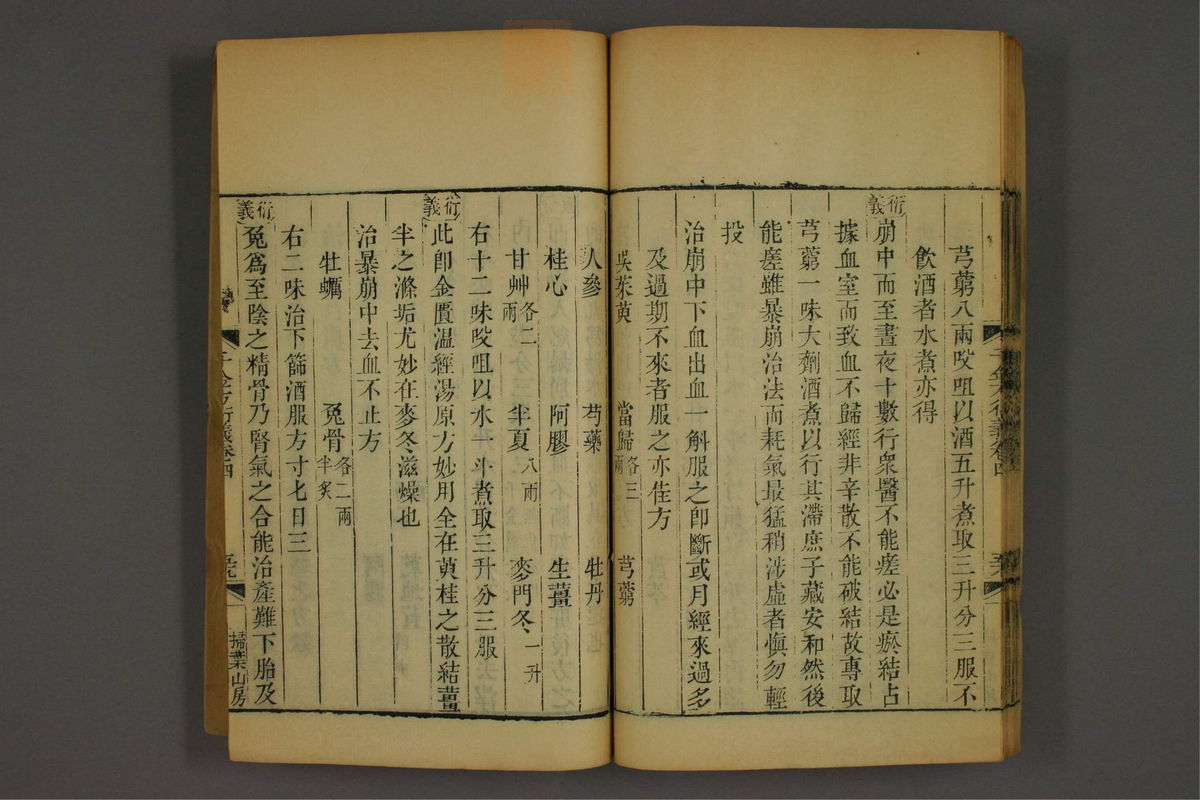 芎藭八兩㕮咀以酒五升煮取三升分三服不
飲酒者水煮亦得
衍義
崩中而至晝夜十數行衆醫不能瘥必是瘀結占
據血室而致血不歸經非辛散不能破結故專取
芎藭一味大劑酒煮以行其滯庶子藏安和然後
能瘥雖暴崩治法而耗氣最猛稍涉虛者愼勿輕
投
治崩中下血出血一斛服之卽斷或月經來過多
及過期不來者服之亦佳方
吳茱萸 當歸各三兩 芎藭
人參 芍藥 牡丹
桂心 阿膠 生薑
甘艸各二兩 半夏八兩 麥門冬一升
右十二味㕮咀以水一斗煮取三升分三服
衍義
此卽金匱溫經湯原方妙用全在萸桂之散結薑
半之滌垢尤妙在麥冬滋燥也
治暴崩中去血不止方
牡蠣 兔骨各二兩半炙
右二味治下篩酒服方寸匕日三
衍義
兔爲至陰之精骨乃腎氣之合能治產難下胎及
千金方衍義卷四
掃葉山房